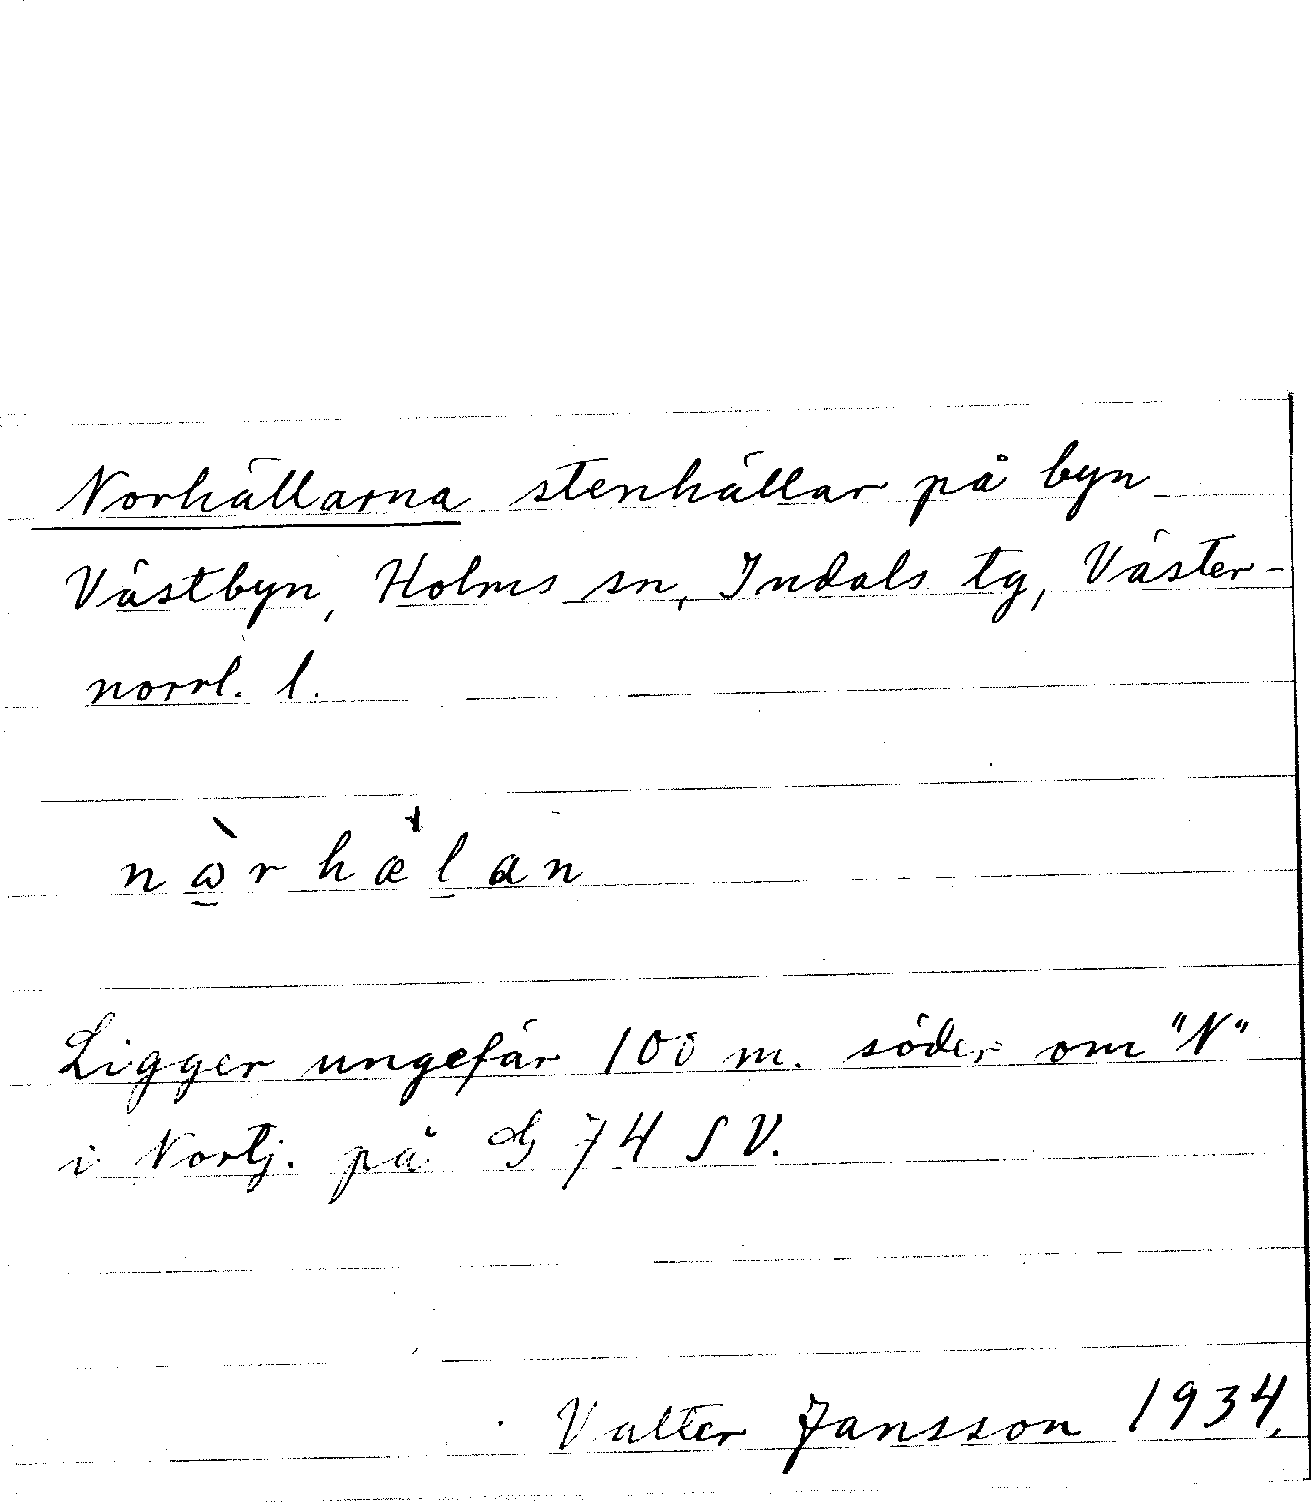 Norhällarna stenhällar på byn
Västbyn, Holms sn, Indals tg, Väster-
norrl. l.
nὼ̲rhæ̍l̲an
Ligger ungefär 100 m. söder om "N"
i Nortj. på G 74 SV.
Valter Jansson 1934.